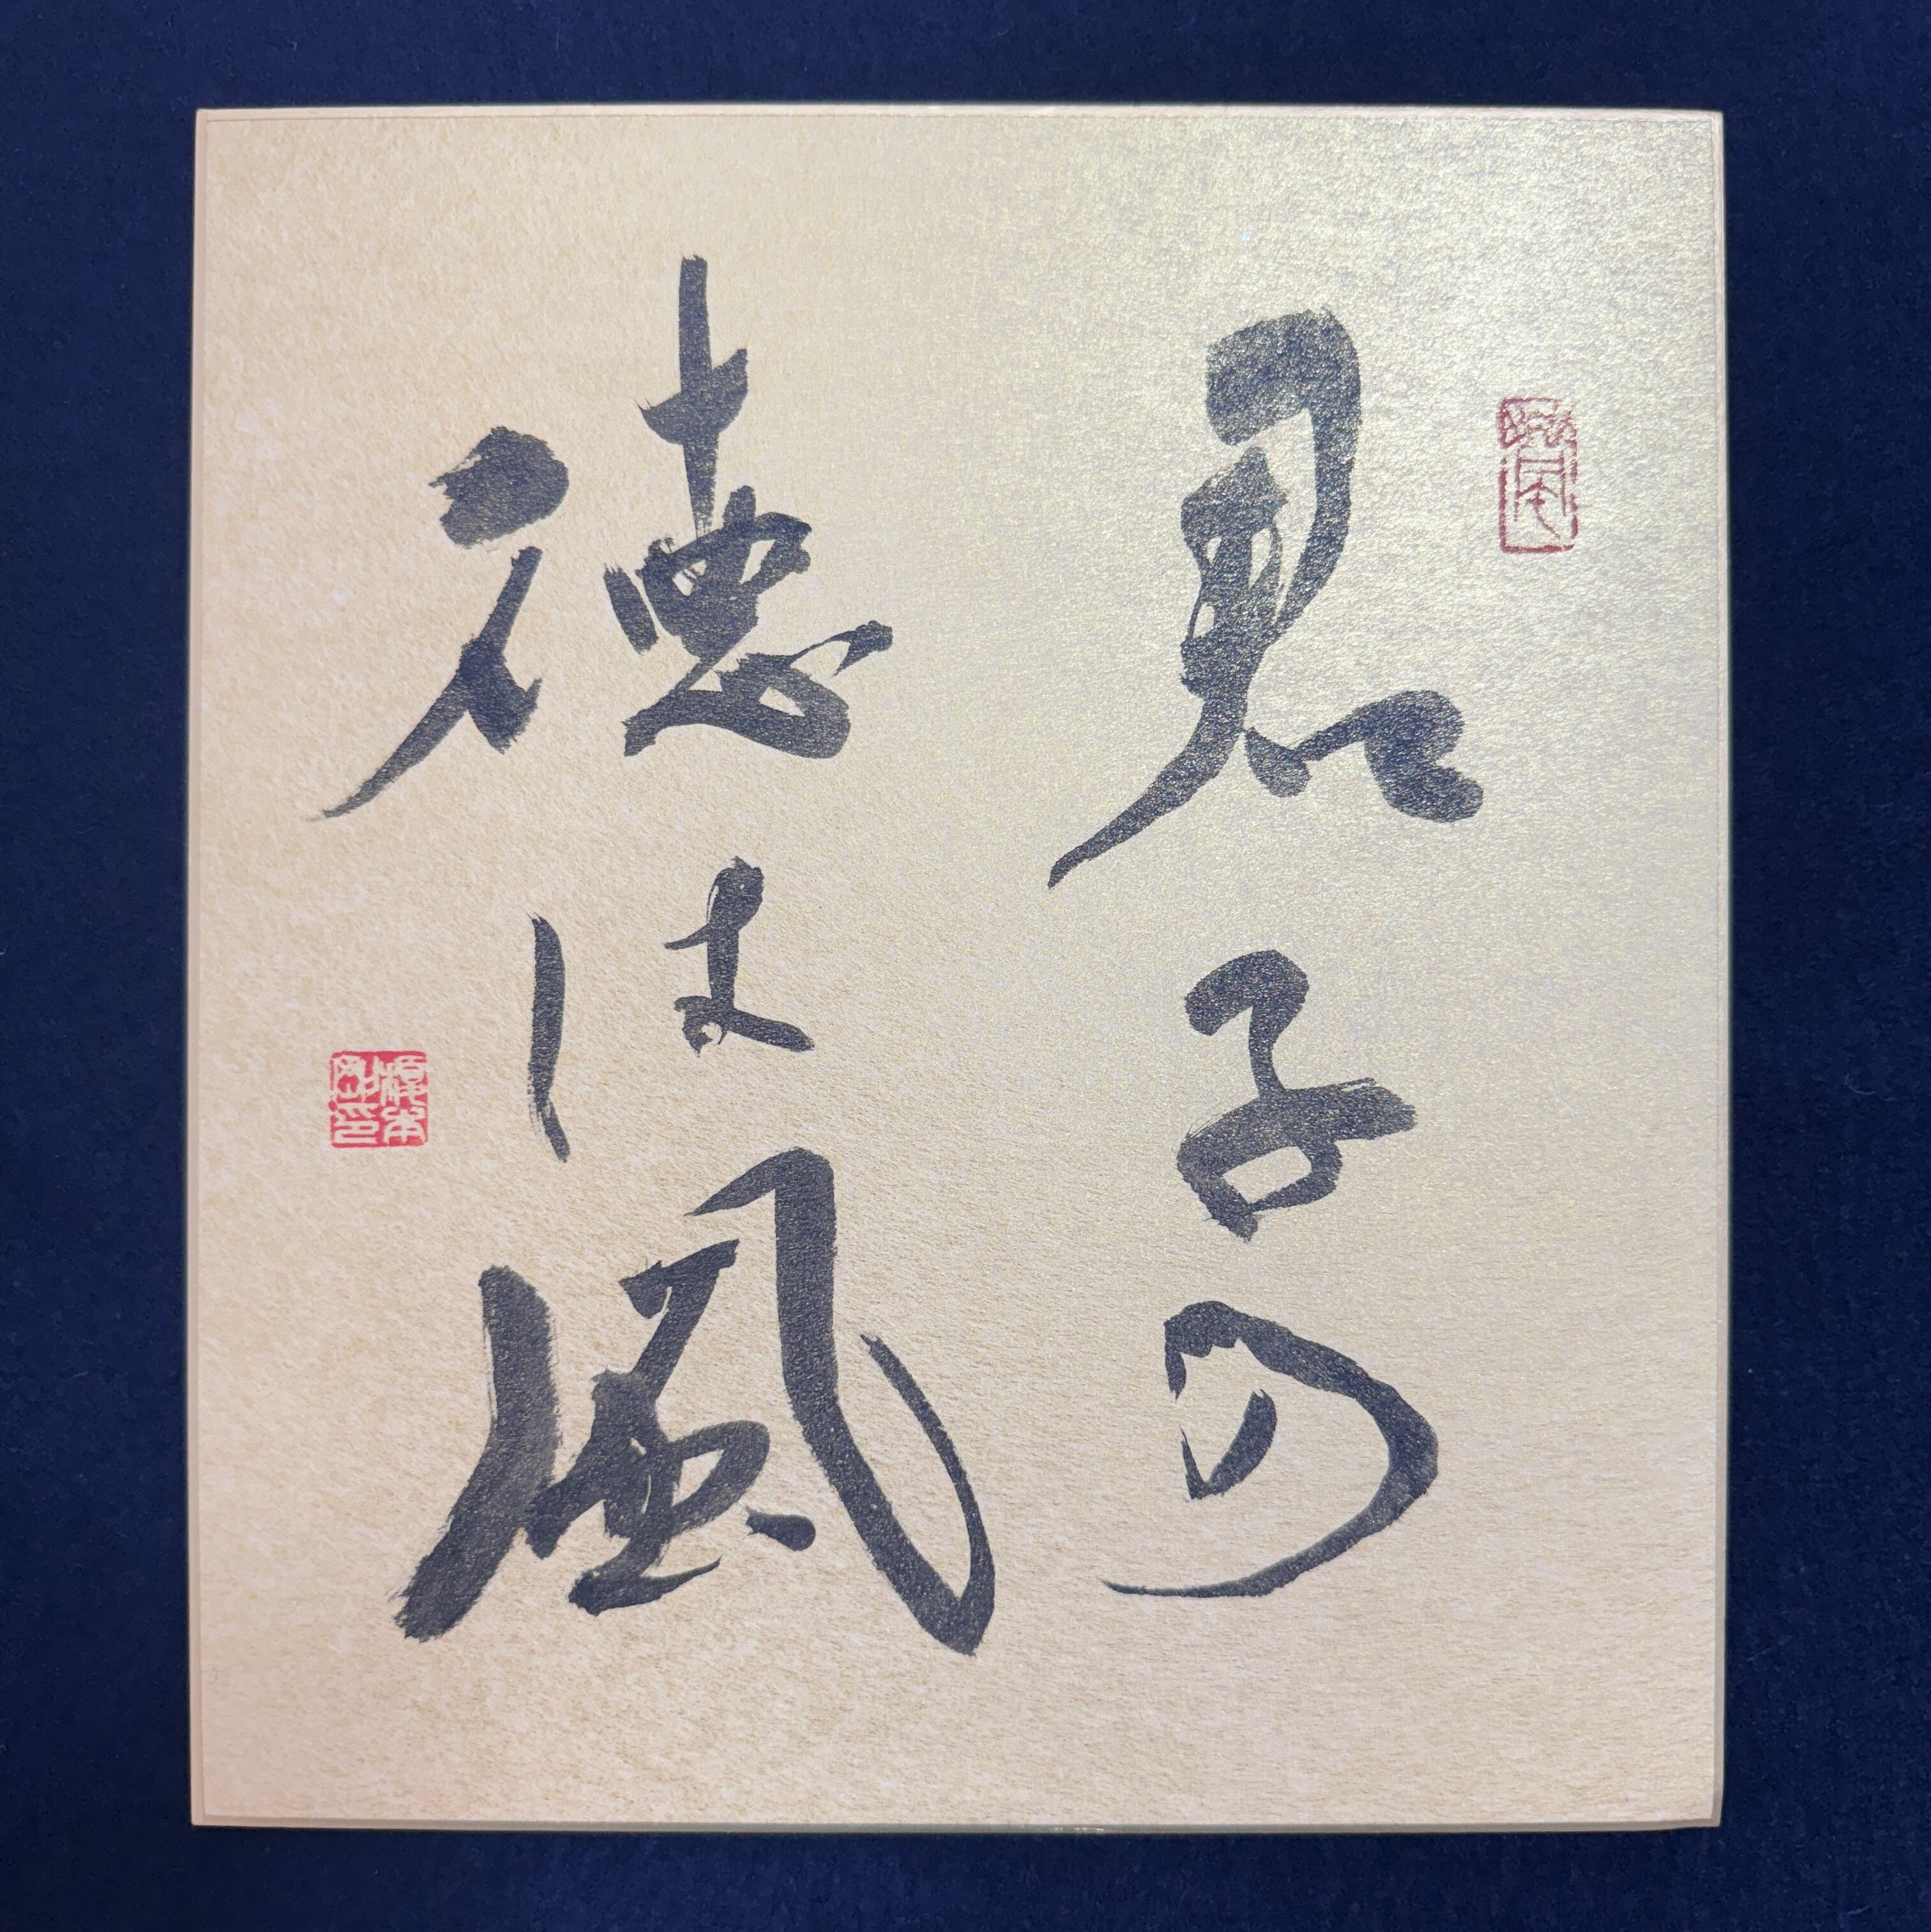 君子の
徳は風